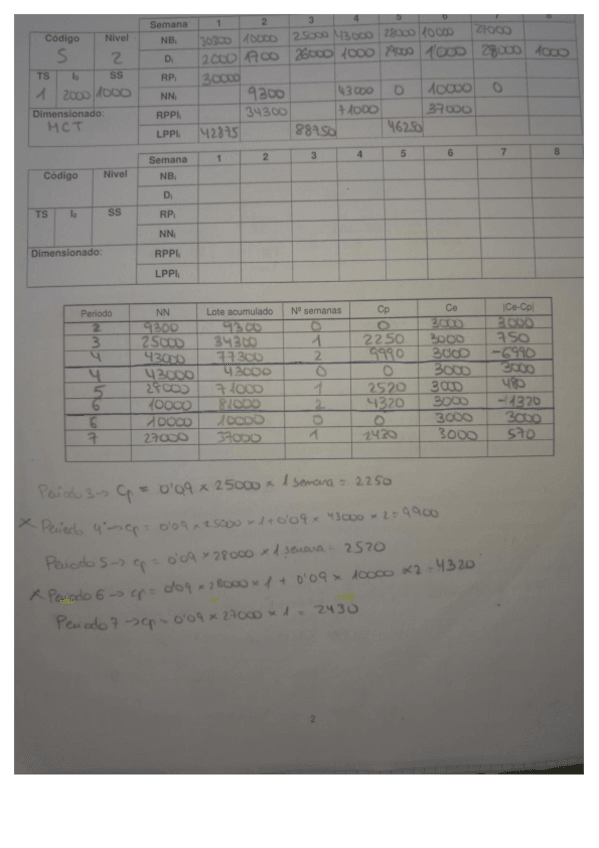 Semana 1 2 3 4 5 6 7 8
Código Nivel NBᵢ 30300 10000 25000 43000 28000 10000 27000
S 2 Dᵢ 2000 1700 26000 1000 29000 1'000 28000 1000
TS Iₒ SS RPᵢ 30000
1 2000 1000 NNᵢ 9300 43000 0 10000 0
Dimensionado: RPPIᵢ 34300 71000 37000
MCT LPPIᵢ 42875 88750 46250
Semana 1 2 3 4 5 6 7 8
Código Nivel NBᵢ
Dᵢ
TS Iₒ SS RPᵢ
NNᵢ
Dimensionado: RPPIᵢ
LPPIᵢ
Periodo NN Lote acumulado Nº semanas Cp Ce |Ce-Cp|
2 9300 9300 0 0 3000 3000
3 25000 34300 1 2250 3000 750
4 43000 77300 2 9990 3000 -6990
4 43000 43000 0 0 3000 3000
5 28000 71000 1 2520 3000 480
6 10000 81000 2 4320 3000 -1320
6 10000 10000 0 0 3000 3000
7 27000 37000 1 2430 3000 570
Periodo 3 → Cp = 0'09 x 25000 x 1 semana = 2250
x Periodo 4 → cp = 0'09 x 25000 x 1 + 0'09 x 43000 x 2 = 9900
Periodo 5 → cp = 0'09 x 28000 x 1 semana = 2520
x Periodo 6 → cp = 0'09 x 28000 x 1 + 0'09 x 10000 x 2 = 4320
Periodo 7 → cp = 0'09 x 27000 x 1 = 2430
2